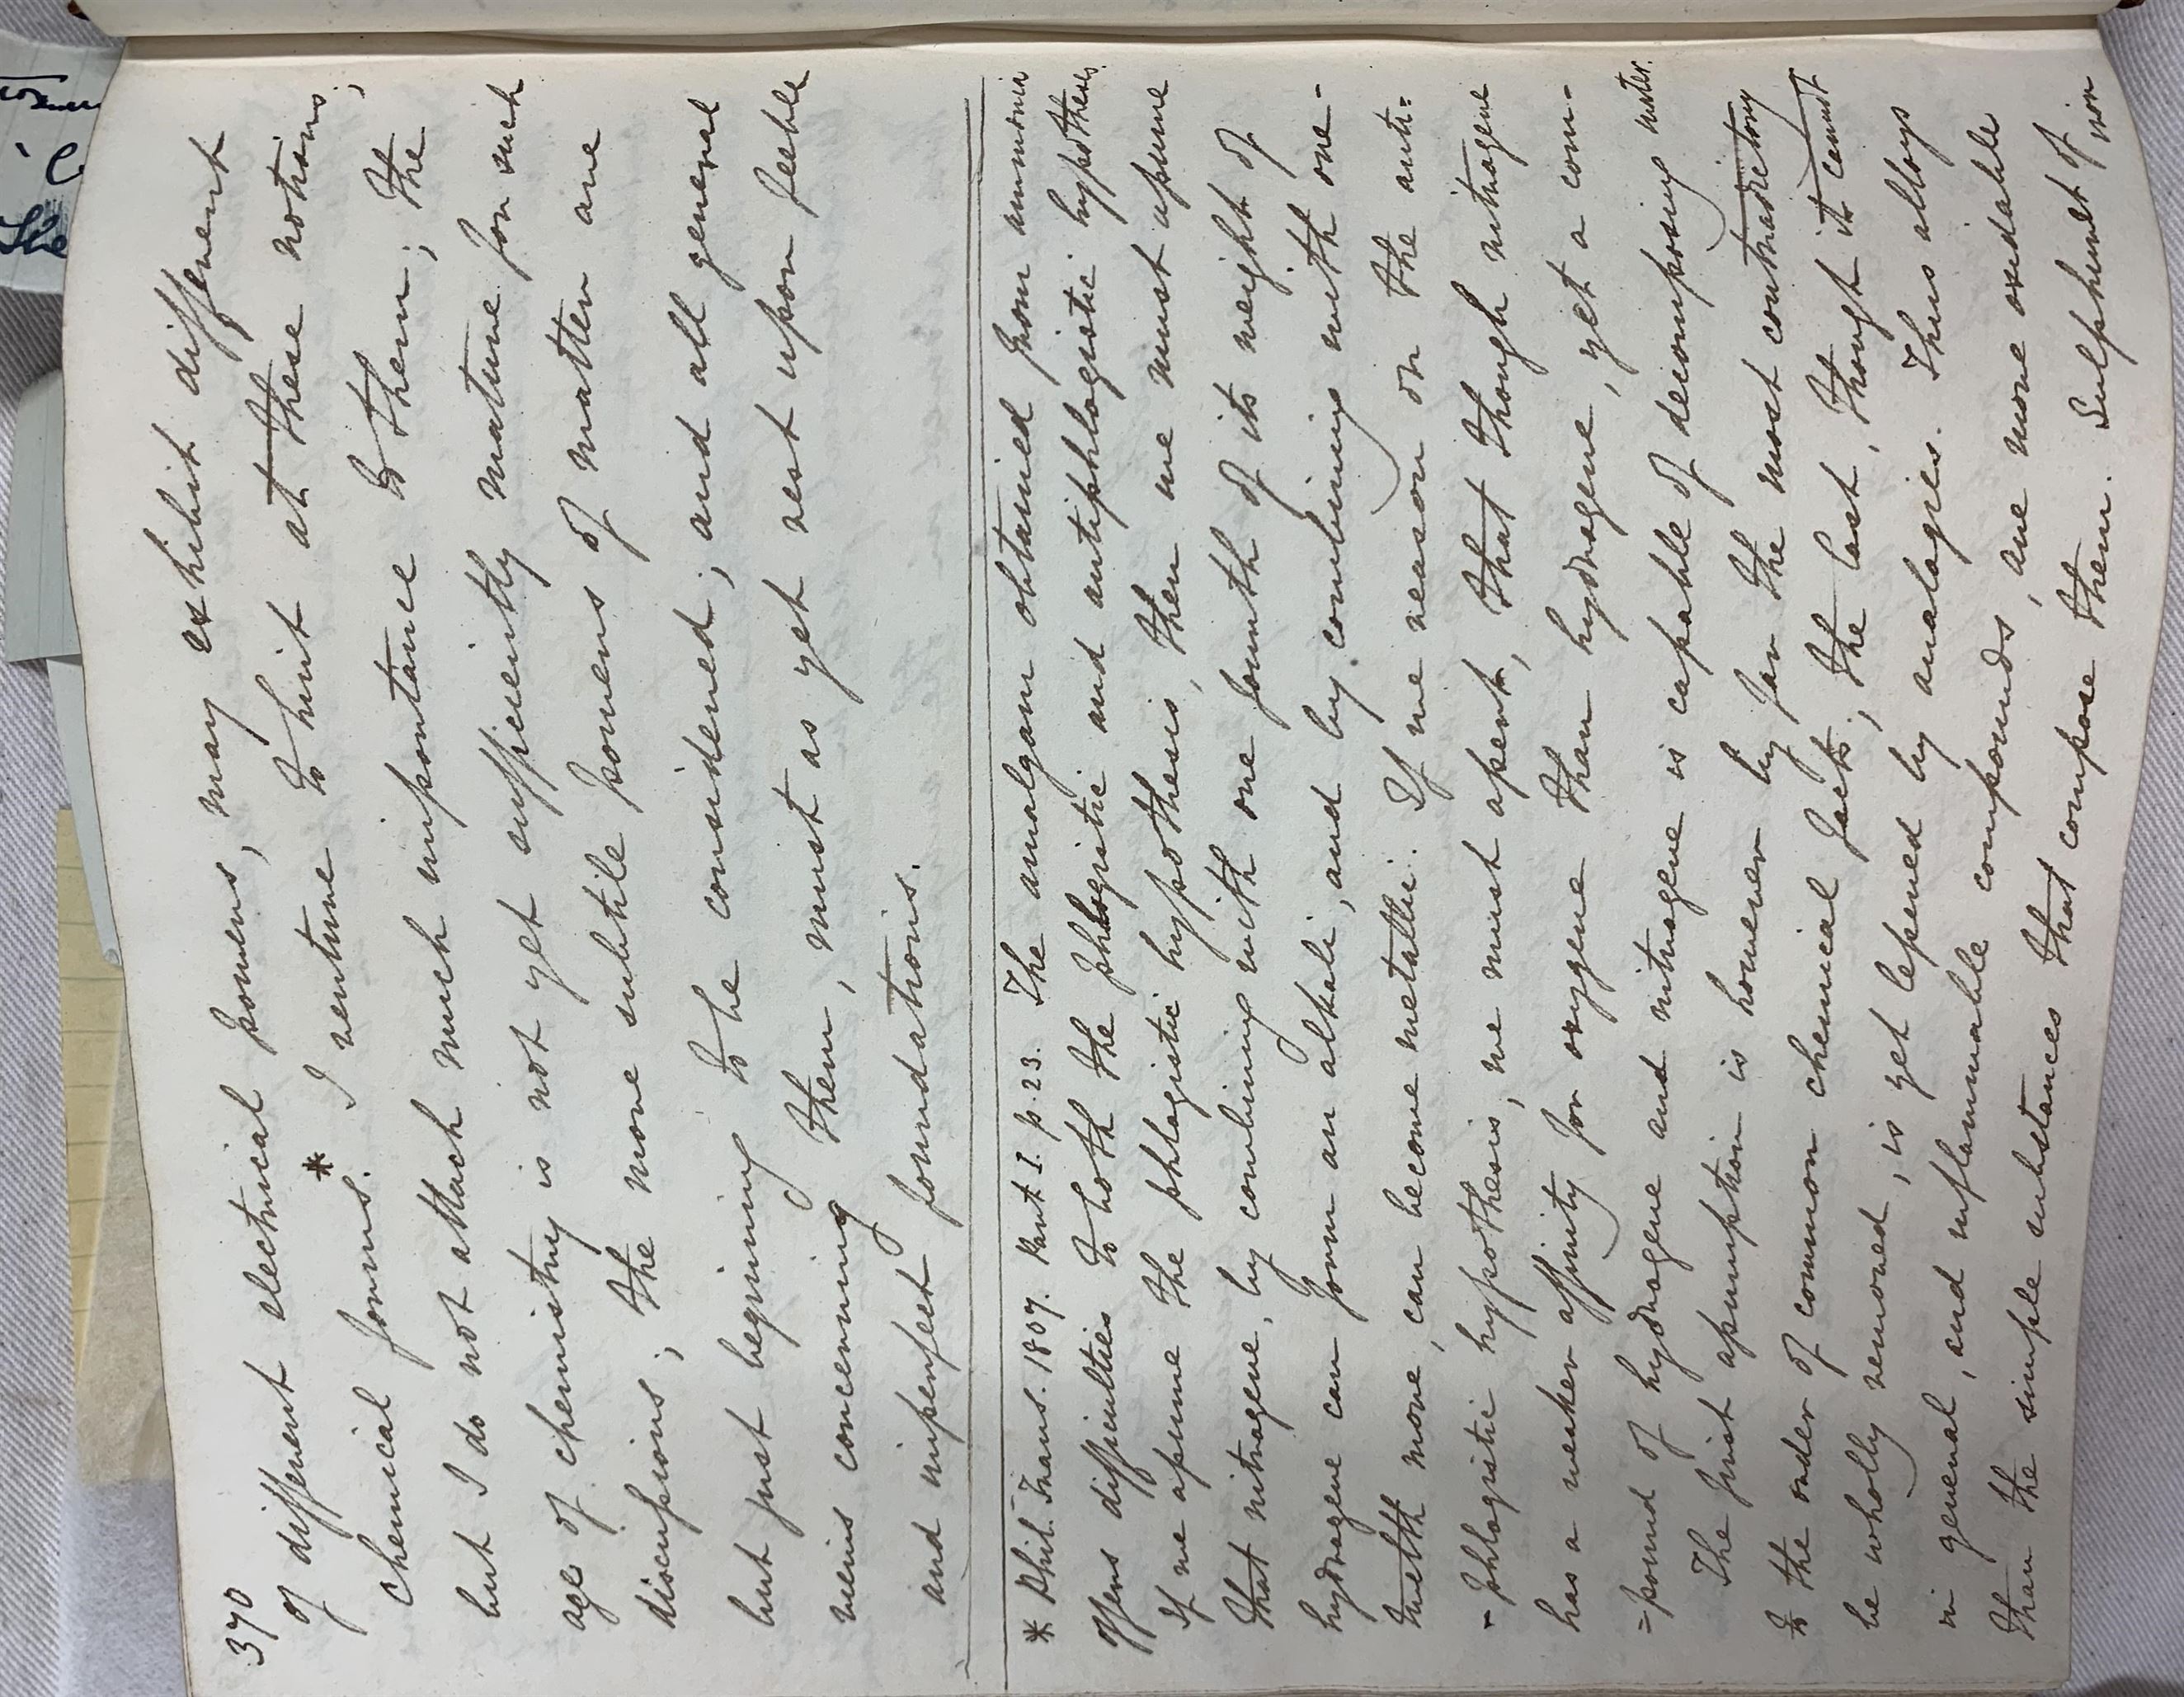 370
of different electrical powers, may exhibit different
chemical forms.* I venture to hint at these notions;
but I do not attach much importance to them; the
age of chemistry is not yet sufficiently mature for such
discuſsions; the more subtile powers of matter are
but just beginning to be considered; and all general
views concerning them, must as yet rest upon feeble
and imperfect foundations.
* Phil. Trans. 1807. Part I. p. 23. The amalgam obtained from ammonia
offers difficulties to both the phlogistic and antiphlogistic hypotheses.
If we aſsume the phlogistic hypothesis, then we must aſsume
that nitrogene, by combining with one fourth of its weight of
hydrogene can form an alkali, and by combining with one-
twelfth more, can become metallic. If we reason on the anti=
-phlogistic hypothesis, we must aſsert, that though nitrogene
has a weaker affinity for oxygene than hydrogene, yet a com-
=pound of hydrogene and nitrogene is capable of decomposing water.
The first aſsumption is however by far the most contradictory
to the order of common chemical facts; the last, though it cannot
be wholly removed, is yet leſsened by analogies. Thus alloys
in general, and inflammable compounds, are more oxidable
than the simple substances that compose them. Sulphuret of iron